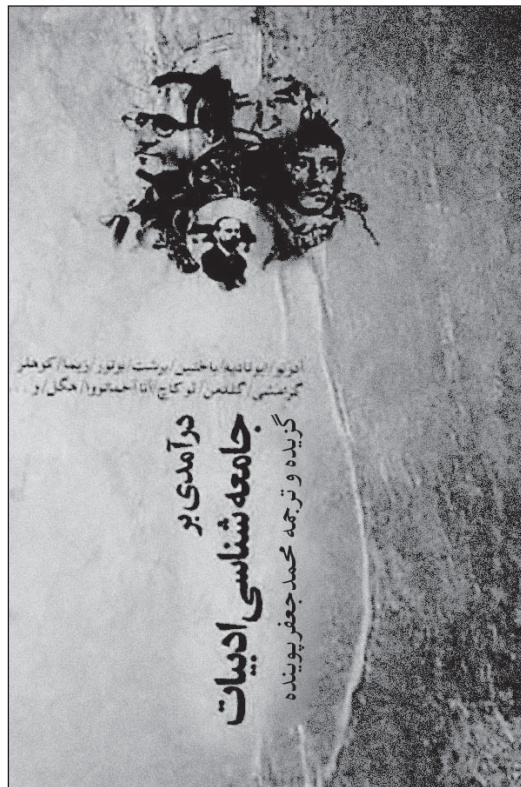 آدرنو/ایوتادیه/باختین/برشت/برنور/زیما/کوهلر
گرامشی/گلدمن/لوکاچ/آنا آخماتووا/هگل/و...
درآمدی بر
جامعه شناسی ادبیات
گزیده و ترجمه محمد جعفر پوینده